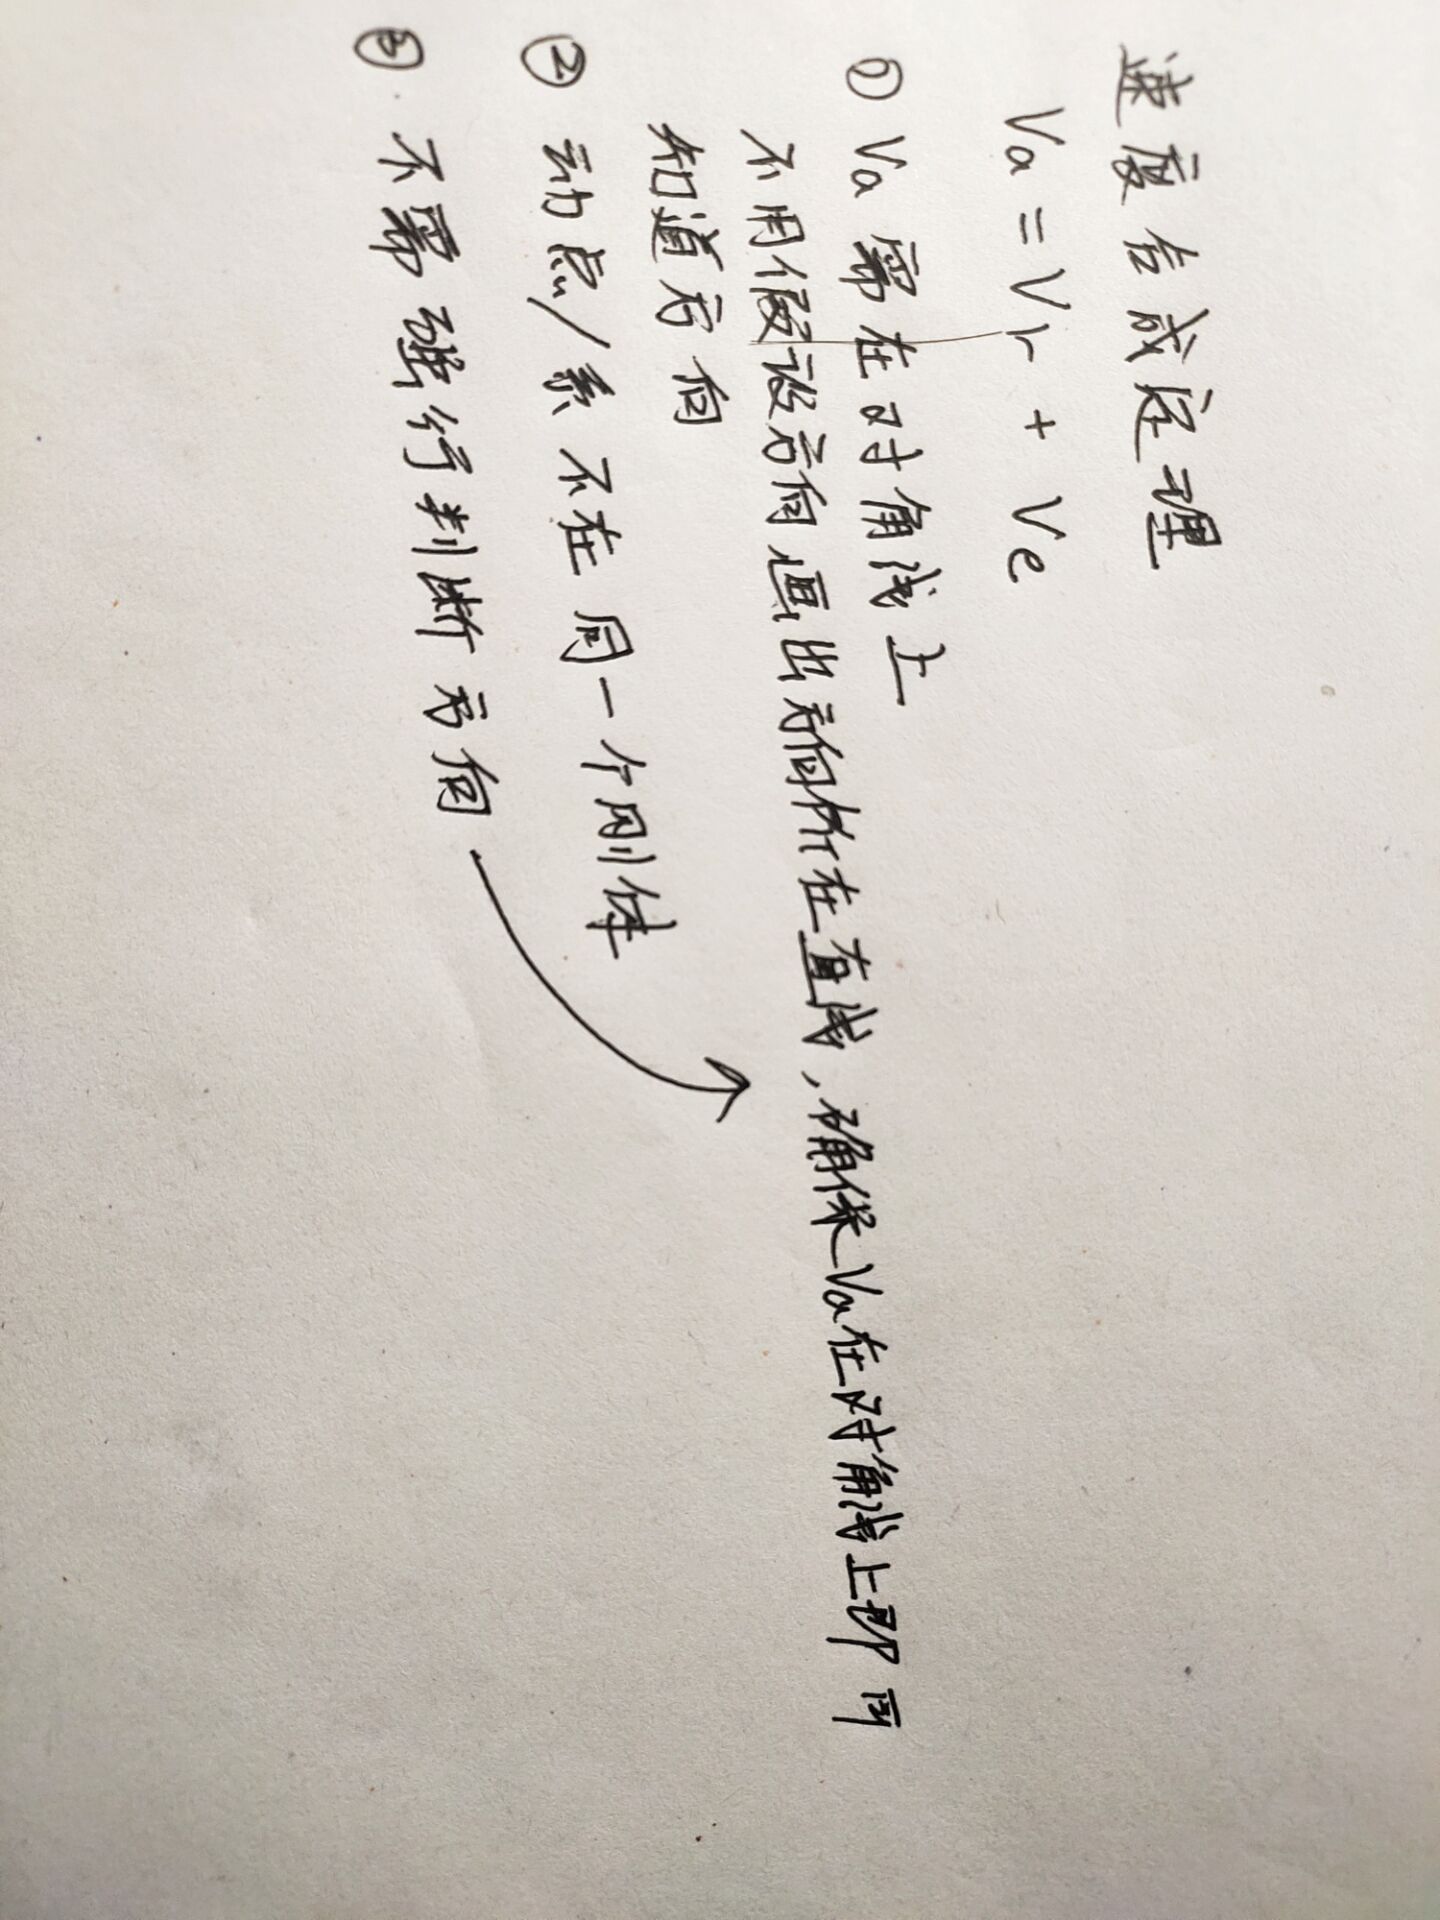 速度合成定理
Va = Vr + Ve
① Va 需在对角线上
不用假设方向画出方向所在直线，确保Va在对角线上即可
知道方向
② 动点/系 不在同一个刚体
③ 不需强行判断方向